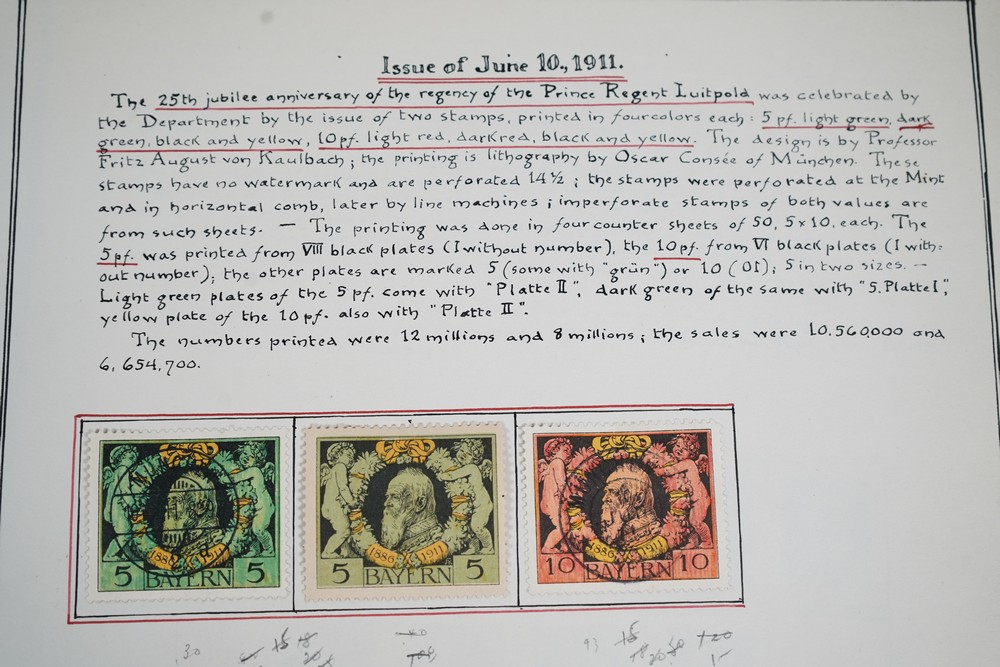 Issue of June 10., 1911.
The 25th jubilee anniversary of the regency of the Prince Regent Luitpold was celebrated by
the Department by the issue of two stamps, printed in fourcolors each: 5 pf. light green, dark
green, black and yellow, 10 pf. light red, darkred, black and yellow. The design is by Professor
Fritz August von Kaulbach; the printing is lithography by Oscar Consée of München. These
stamps have no watermark and are perforated 14½; the stamps were perforated at the Mint
and in horizontal comb, later by line machines; imperforate stamps of both values are
from such sheets. — The printing was done in four counter sheets of 50, 5x10, each. The
5 pf. was printed from VIII black plates (I without number), the 10 pf. from VI black plates (I with=
out number); the other plates are marked 5 (some with "grün") or 10 (01); 5 in two sizes. —
Light green plates of the 5 pf. come with "Platte II", dark green of the same with "5. Platte I",
yellow plate of the 10 pf. also with "Platte II".
The numbers printed were 12 millions and 8 millions; the sales were 10.560,000 and
6,654,700.
1886 1911
5 BAYERN 5
1886 1911
5 BAYERN 5
1886 1911
10 BAYERN 10
.30